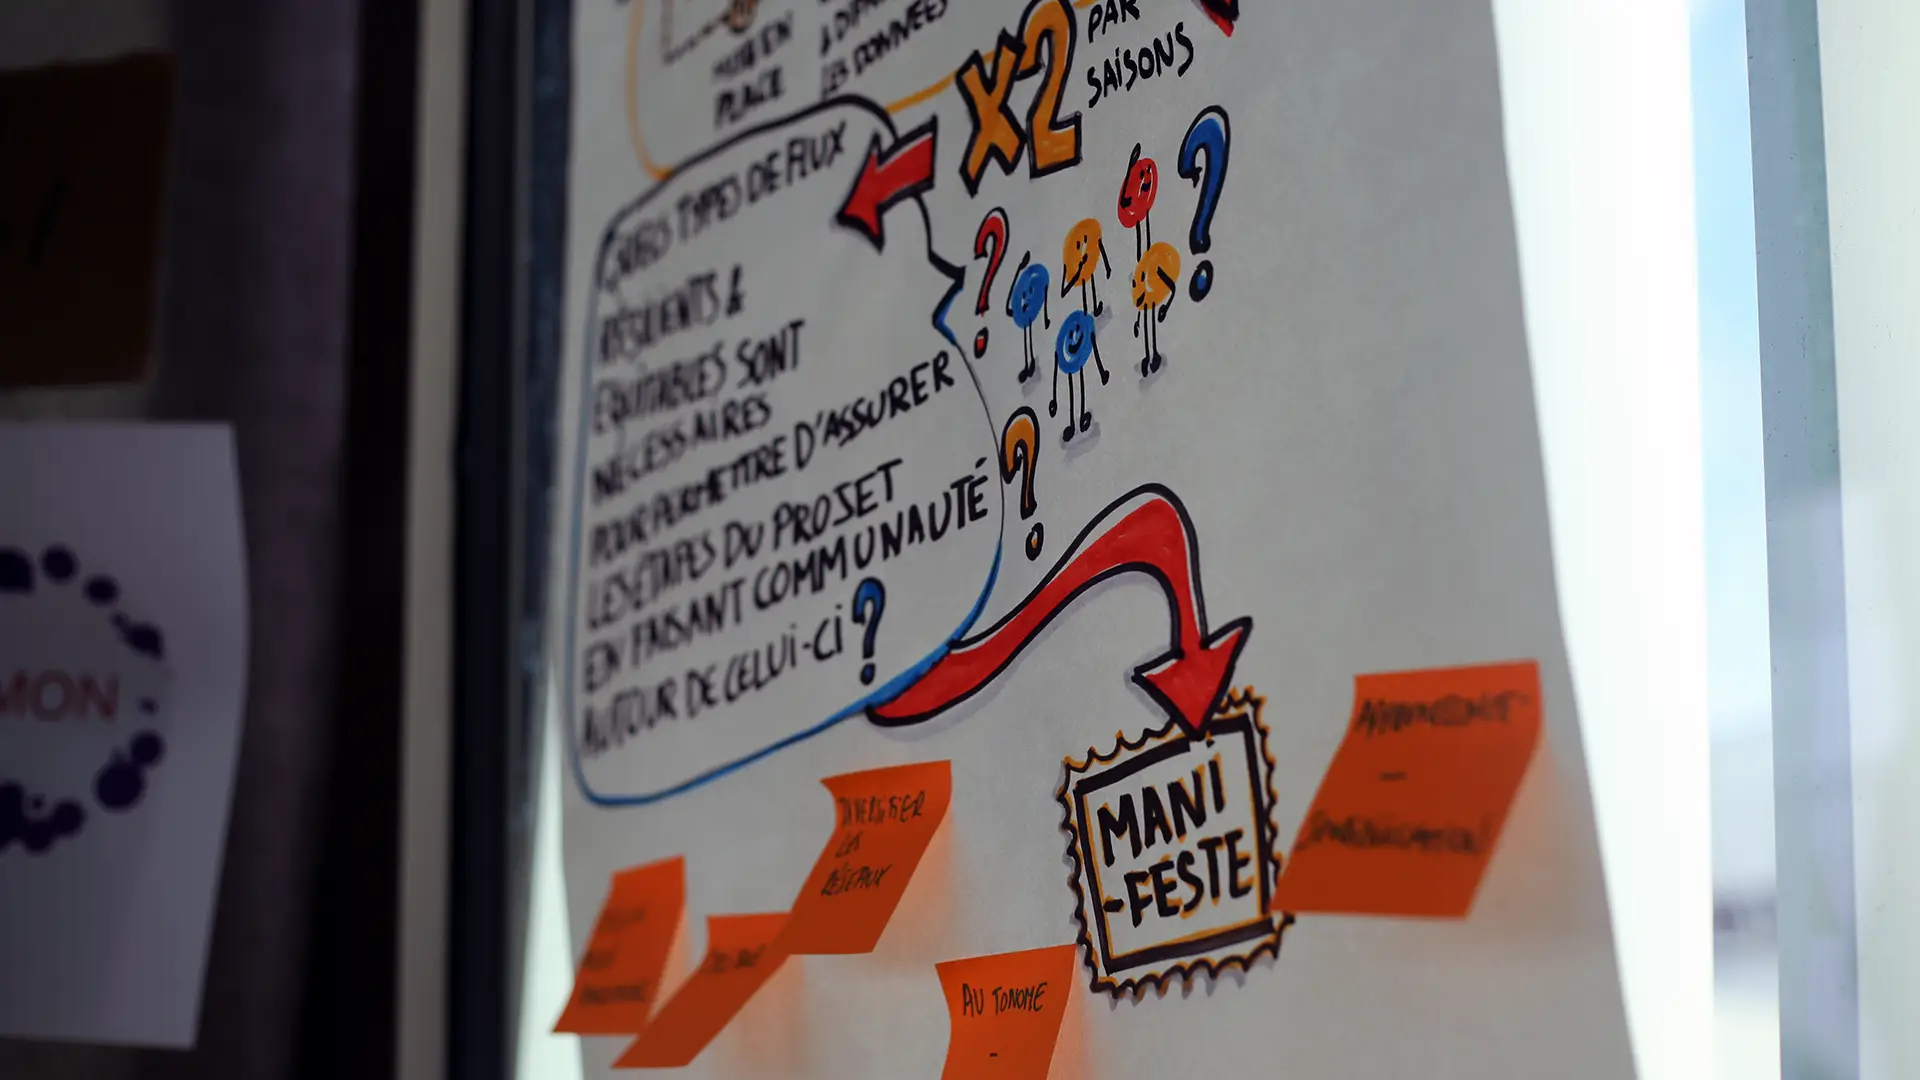 MISE EN
PLACE
LES DONNÉES
X2
PAR
SAISONS
QUELS TYPES DE FLUX
RÉSILIENTS &
ÉQUITABLES SONT
NÉCESSAIRES
POUR PERMETTRE D'ASSURER
LES ÉTAPES DU PROJET
EN FAISANT COMMUNAUTÉ
AUTOUR DE CELUI-CI ?
MANI
-FESTE
DIVERSIFIER
LES
RÉSEAUX
AUTONOME
-
MON